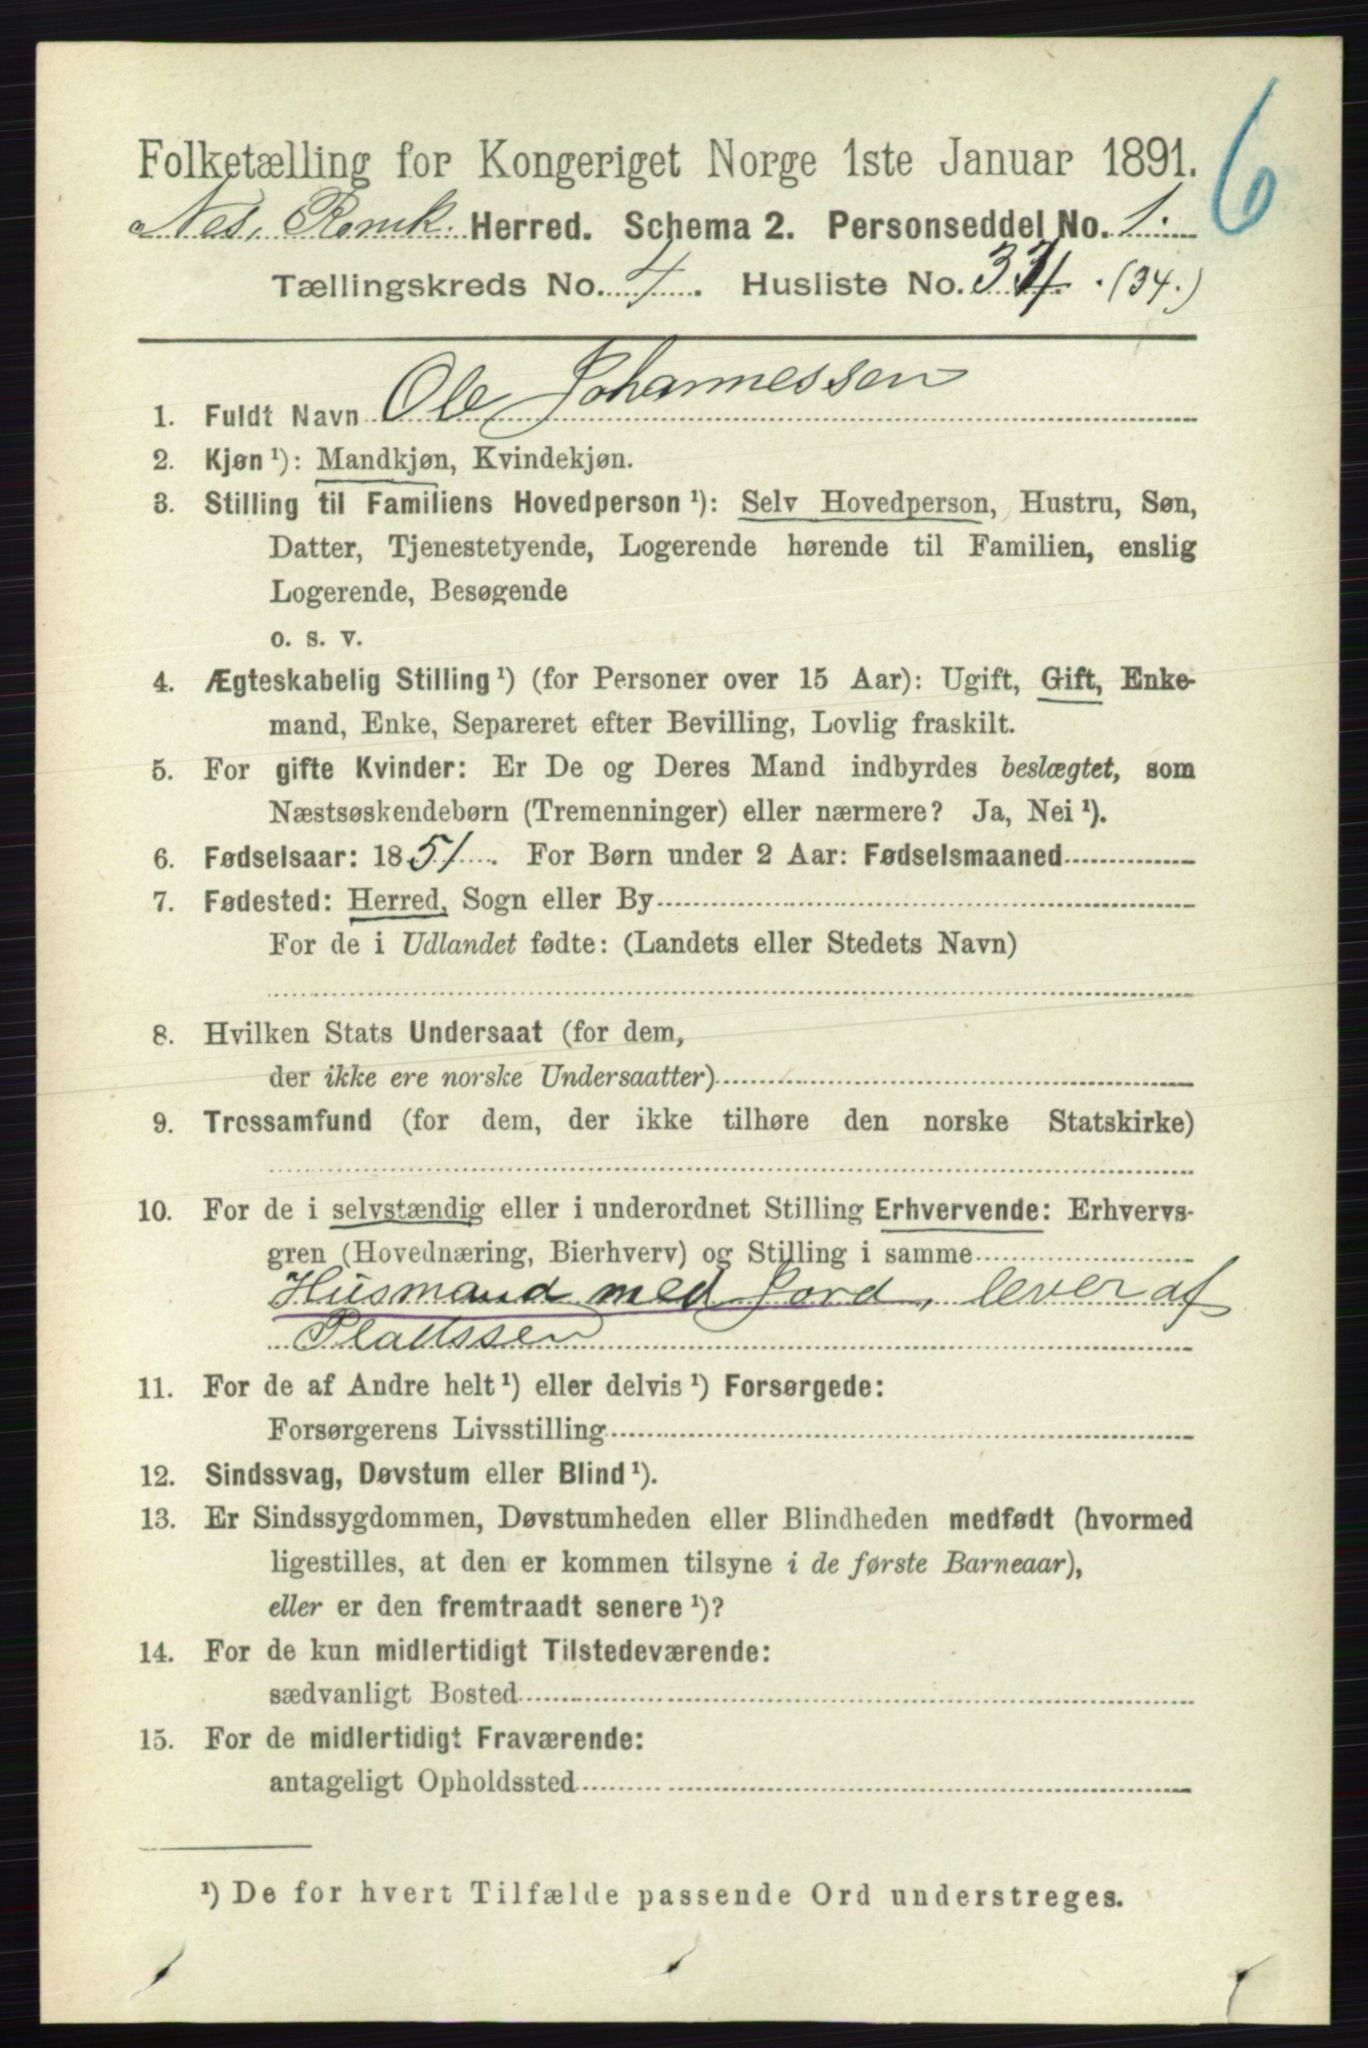 6
Folketælling for Kongeriget Norge 1ste Januar 1891.
Nes, Romk. Herred. Schema 2. Personseddel No. 1.
Tællingskreds No. 4. Husliste No. 34. (34.)
1. Fuldt Navn Ole Johannessen
2. Kjøn ¹): Mandkjøn, Kvindekjøn.
3. Stilling til Familiens Hovedperson ¹): Selv Hovedperson, Hustru, Søn,
Datter, Tjenestetyende, Logerende hørende til Familien, enslig
Logerende, Besøgende
o. s. v.
4. Ægteskabelig Stilling ¹) (for Personer over 15 Aar): Ugift, Gift, Enke-
mand, Enke, Separeret efter Bevilling, Lovlig fraskilt.
5. For gifte Kvinder: Er De og Deres Mand indbyrdes beslægtet, som
Næstsøskendebørn (Tremenninger) eller nærmere? Ja, Nei ¹).
6. Fødselsaar: 1851. For Børn under 2 Aar: Fødselsmaaned
7. Fødested: Herred, Sogn eller By
For de i Udlandet fødte: (Landets eller Stedets Navn)
8. Hvilken Stats Undersaat (for dem,
der ikke ere norske Undersaatter)
9. Trossamfund (for dem, der ikke tilhøre den norske Statskirke)
10. For de i selvstændig eller i underordnet Stilling Erhvervende: Erhvervs-
gren (Hovednæring, Bierhverv) og Stilling i samme
Husmand med Jord, lever af
Pladssen
11. For de af Andre helt ¹) eller delvis ¹) Forsørgede:
Forsørgerens Livsstilling
12. Sindssvag, Døvstum eller Blind ¹).
13. Er Sindssygdommen, Døvstumheden eller Blindheden medfødt (hvormed
ligestilles, at den er kommen tilsyne i de første Barneaar),
eller er den fremtraadt senere ¹)?
14. For de kun midlertidigt Tilstedeværende:
sædvanligt Bosted
15. For de midlertidigt Fraværende:
antageligt Opholdssted
¹) De for hvert Tilfælde passende Ord understreges.